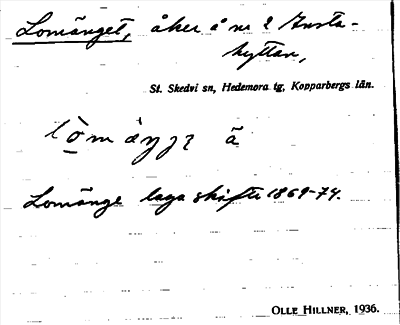 Lomänget, åker å nr 2 Gusta-
hyttan,
St. Skedvi sn, Hedemora tg, Kopparbergs län.
ä
Lomänge laga skifte 1869-74.
OLLE HILLNER, 1936.